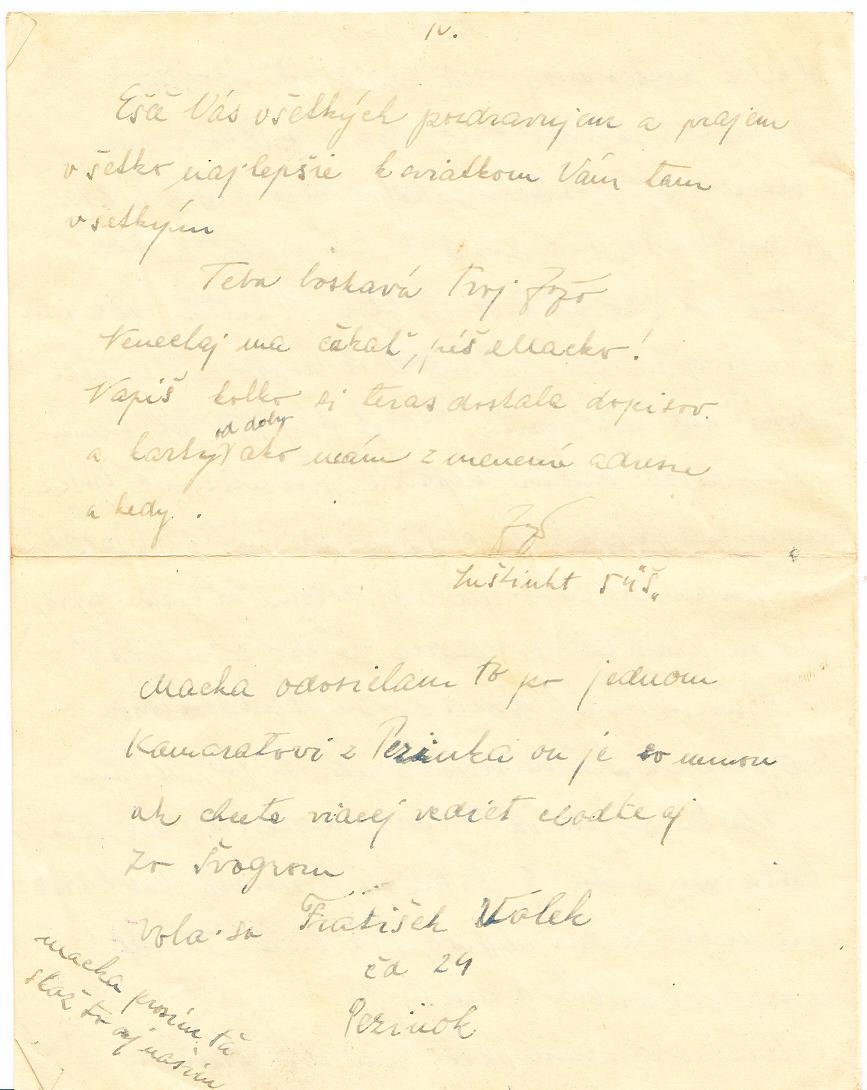 IV.
Ešče Vás všetkých pozdravujem a prajem
všetko najlepšie k sviatkom Vám tam
všetkým
Teba boskavá tvoj Jožo
Nenechaj ma čakať, píš Macko!
Napíš kolko si teras dostala dopisov.
od doby
a karty ako mám zmenené adresu
a kedy.
Jožo
Macka odosielam to po jednom
Kamaratovi z Pezinka on je so mnou
ak chcete viacej vediet chodte aj
zo Švogrom
Vola sa František
čd 29
Pezinok
macka prosím ťa
skaž to aj našim